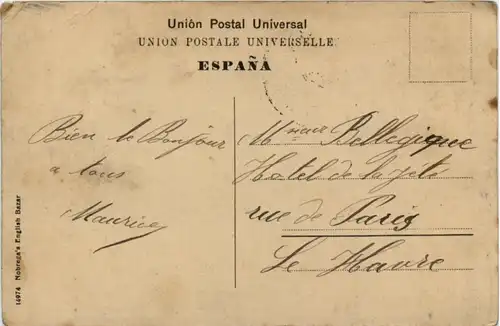 Unión Postal Universal
UNION POSTALE UNIVERSELLE.
ESPAÑA
Bien le Bonjour
a tous
Maurice
Bellegique
Hotel de la jeté
rue de Paris
Le Havre
14974 Nobrega's English Bazar